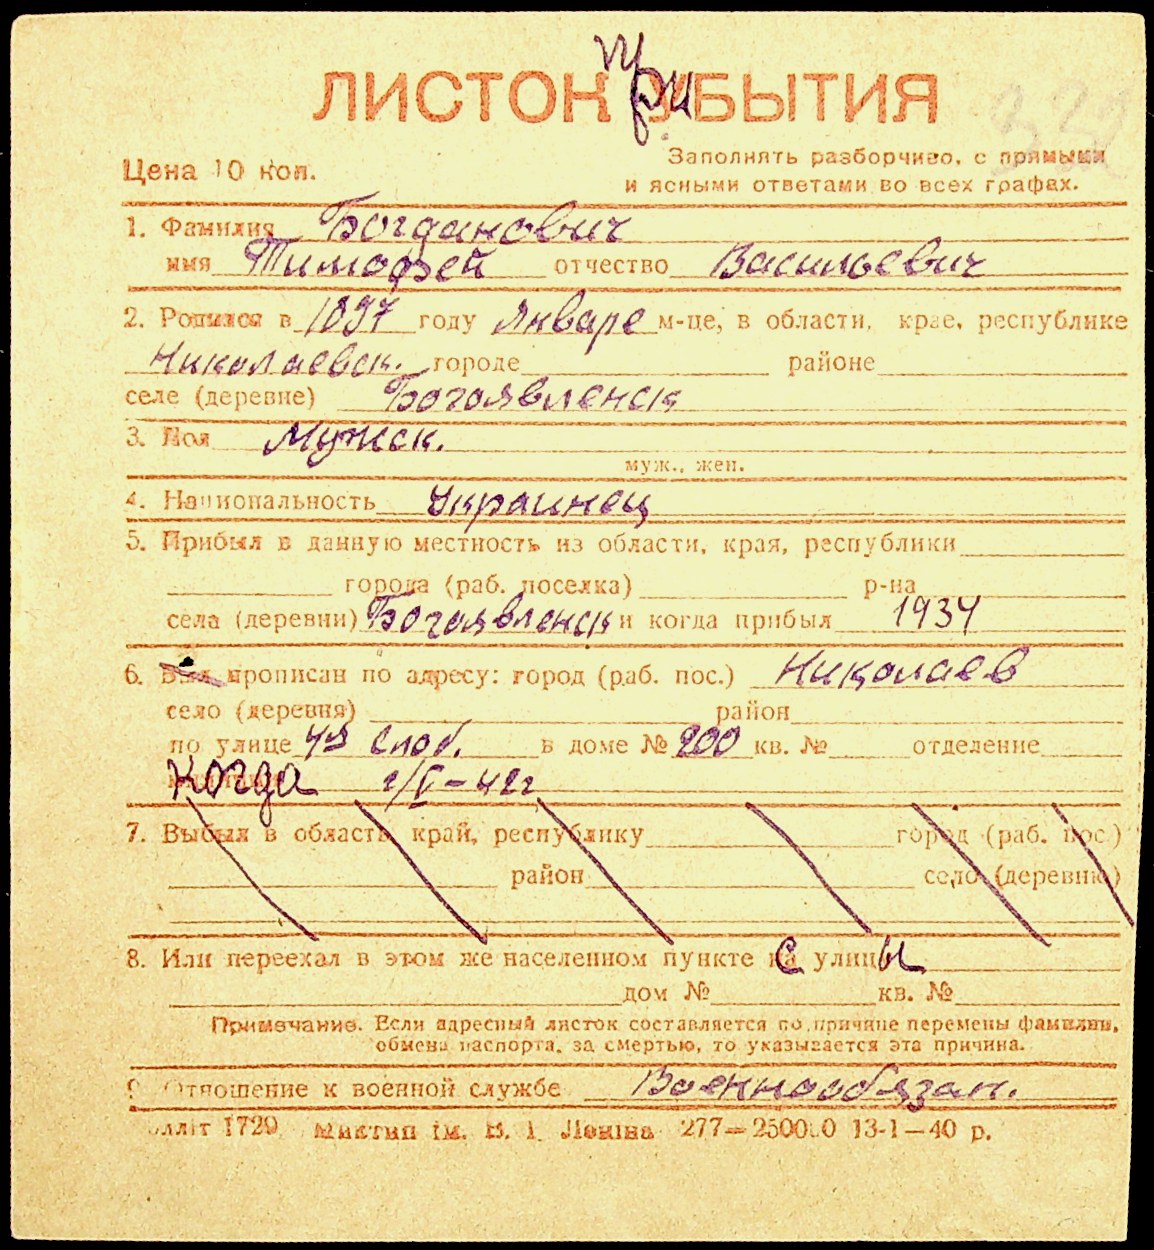 ЛИСТОК при УБЫТИЯ
Цена 10 коп.
Заполнять разборчиво, с прямыми
и ясными ответами во всех графах.
1. Фамилия Богданович
имя Тимофей отчество Васильевич
2. Родился в 1897 году Январе м-це, в области, крае, республике
Николаевск. городе районе
селе (деревне) Богоявленск
3. Пол Мужск.
муж., жен.
4. Национальность Украинец
5. Прибыл в данную местность из области, края, республики
города (раб. поселка) р-на
села (деревни) Богоявленск и когда прибыл 1934
6. Был прописан по адресу: город (раб. пос.) Николаев
село (деревня) район
по улице 4я Слоб. в доме № 200 кв. № отделение
Когда 2/V-42г
7. Выбыл в область, край, республику город (раб. пос.)
район село (деревню)
8. Или переехал в этом же населенном пункте с улицы
дом № кв. №
Примечание. Если адресный листок составляется по причине перемены фамилии,
обмена паспорта, за смертью, то указывается эта причина.
9. Отношение к военной службе Военнообязан.
лліт 1729 ім. В. І. Леніна 277—250000 13-1—40 р.